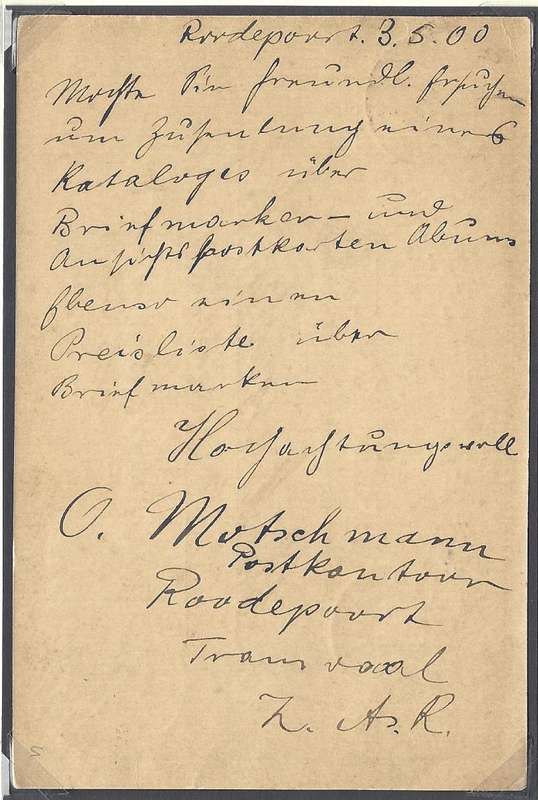 Roodepoort. 3.5.00
Mochte Sie freundl. ersuchen
um Zusendung eines
Kataloges über
Briefmarken- und
Ansichtspostkarten Abums
Ebenso einen
Preisliste über
Briefmarken
Hochachtungsvoll
O. Motschmann
Postkantoor
Roodepoort
Transvaal
Z. A. R.